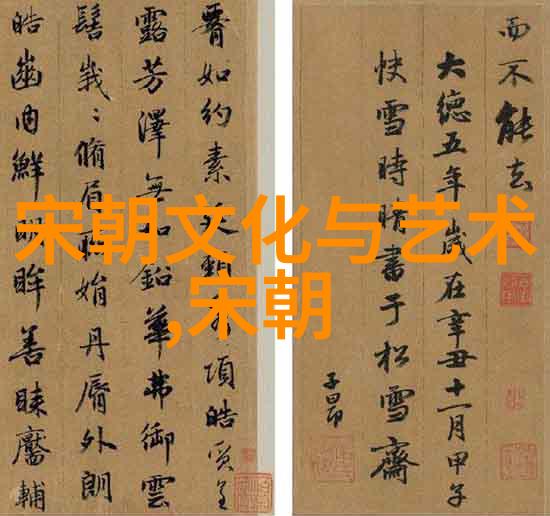 如約素延頸秀項皓質呈
露芳澤無加鉛華弗御雲
髻峩〻脩眉聯娟丹脣外朗
皓齒内鮮明眸善睞靨輔
而不能去
大德五年歲在辛丑十一月甲子
快雪時晴書于松雪齋
子昂
宋朝文化与艺术
,宋朝